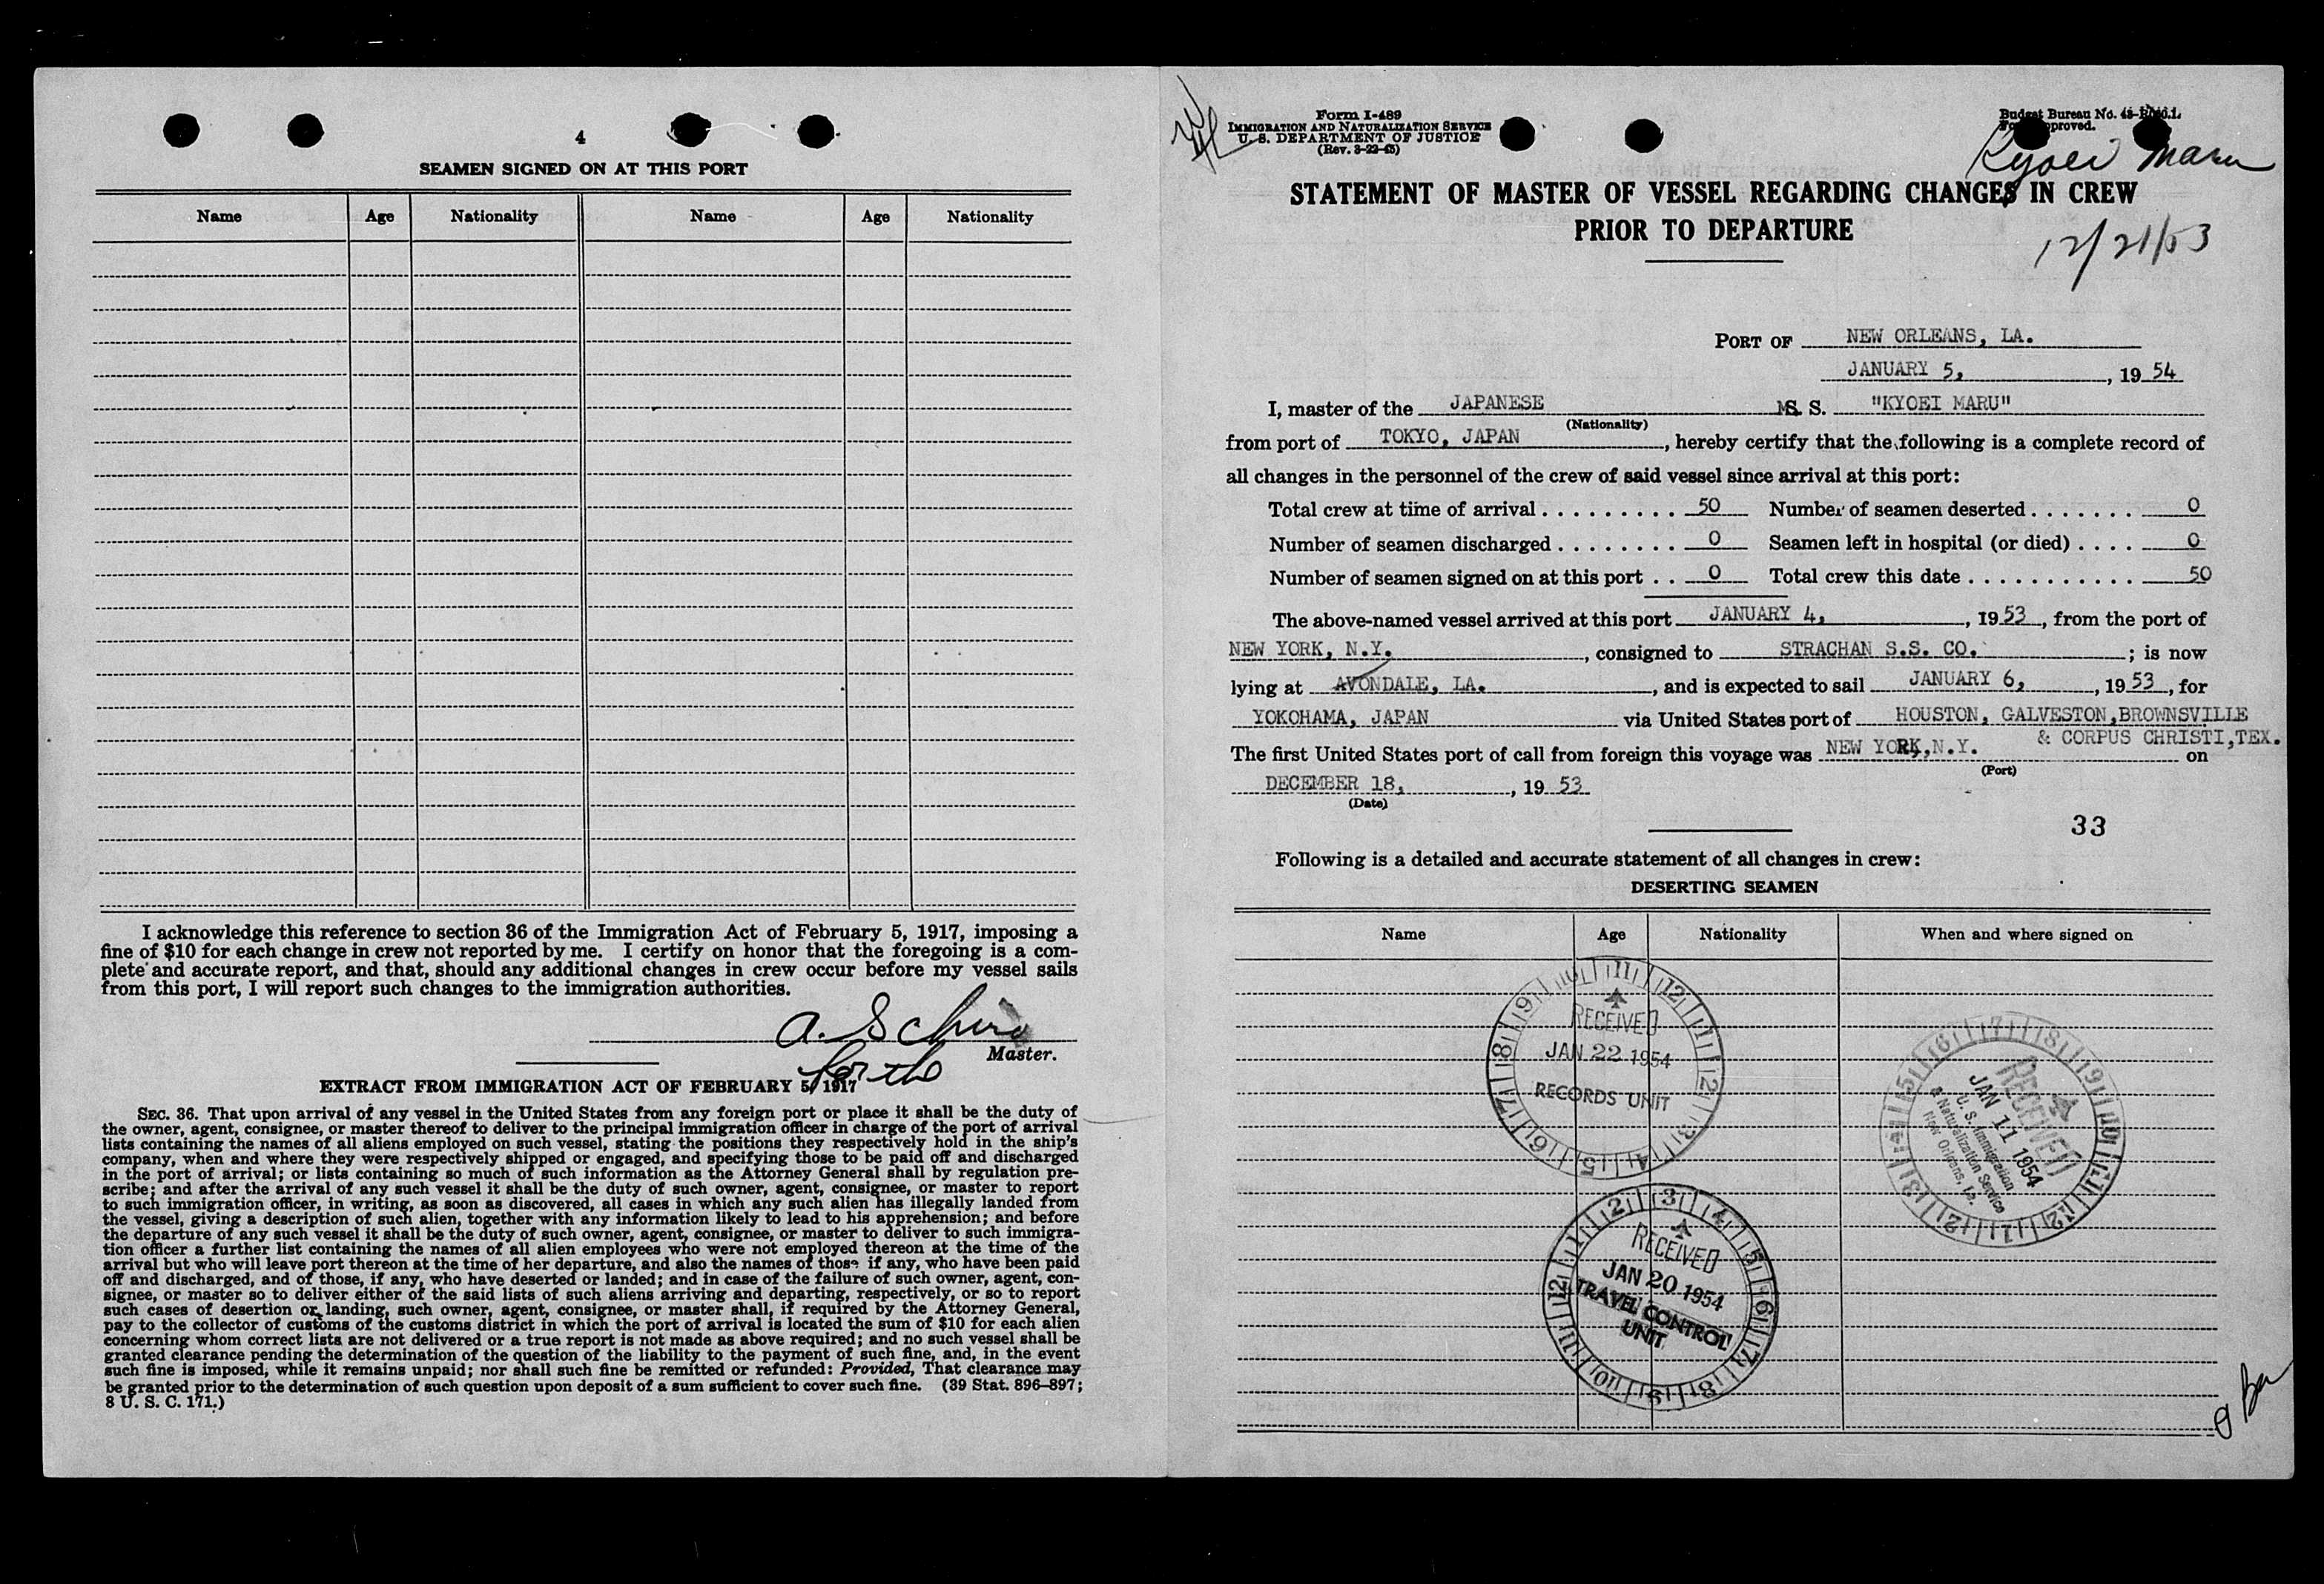 4
SEAMEN SIGNED ON AT THIS PORT
Name Age Nationality Name Age Nationality
I acknowledge this reference to section 36 of the Immigration Act of February 5, 1917, imposing a
fine of $10 for each change in crew not reported by me. I certify on honor that the foregoing is a com-
plete and accurate report, and that, should any additional changes in crew occur before my vessel sails
from this port, I will report such changes to the immigration authorities.
A.
Master.
EXTRACT FROM IMMIGRATION ACT OF FEBRUARY 5, 1917
SEC. 36. That upon arrival of any vessel in the United States from any foreign port or place it shall be the duty of
the owner, agent, consignee, or master thereof to deliver to the principal immigration officer in charge of the port of arrival
lists containing the names of all aliens employed on such vessel, stating the positions they respectively hold in the ship's
company, when and where they were respectively shipped or engaged, and specifying those to be paid off and discharged
in the port of arrival; or lists containing so much of such information as the Attorney General shall by regulation pre-
scribe; and after the arrival of any such vessel it shall be the duty of such owner, agent, consignee, or master to report
to such immigration officer, in writing, as soon as discovered, all cases in which any such alien has illegally landed from
the vessel, giving a description of such alien, together with any information likely to lead to his apprehension; and before
the departure of any such vessel it shall be the duty of such owner, agent, consignee, or master to deliver to such immigra-
tion officer a further list containing the names of all alien employees who were not employed thereon at the time of the
arrival but who will leave port thereon at the time of her departure, and also the names of those if any, who have been paid
off and discharged, and of those, if any, who have deserted or landed; and in case of the failure of such owner, agent, con-
signee, or master so to deliver either of the said lists of such aliens arriving and departing, respectively, or so to report
such cases of desertion or landing, such owner, agent, consignee, or master shall, if required by the Attorney General,
pay to the collector of customs of the customs district in which the port of arrival is located the sum of $10 for each alien
concerning whom correct lists are not delivered or a true report is not made as above required; and no such vessel shall be
granted clearance pending the determination of the question of the liability to the payment of such fine, and, in the event
such fine is imposed, while it remains unpaid; nor shall such fine be remitted or refunded: Provided, That clearance may
be granted prior to the determination of such question upon deposit of a sum sufficient to cover such fine. (39 Stat. 896–897;
8 U. S. C. 171.)
Form I-489
IMMIGRATION AND NATURALIZATION SERVICE
U. S. DEPARTMENT OF JUSTICE
(Rev. 3-22-45)
Budget Bureau No.
Kyoei Maru
STATEMENT OF MASTER OF VESSEL REGARDING CHANGES IN CREW
PRIOR TO DEPARTURE
12/21/53
PORT OF NEW ORLEANS, LA.
JANUARY 5, , 19 54
I, master of the JAPANESE M. S. "KYOEI MARU"
(Nationality)
from port of TOKYO, JAPAN , hereby certify that the following is a complete record of
all changes in the personnel of the crew of said vessel since arrival at this port:
Total crew at time of arrival . . . . . . . . . 50 Number of seamen deserted . . . . . . . 0
Number of seamen discharged . . . . . . . . 0 Seamen left in hospital (or died) . . . . 0
Number of seamen signed on at this port . . 0 Total crew this date . . . . . . . . . . . . 50
The above-named vessel arrived at this port JANUARY 4, , 19 53 , from the port of
NEW YORK, N.Y. , consigned to STRACHAN S.S. CO. ; is now
lying at AVONDALE, LA. , and is expected to sail JANUARY 6, , 19 53 , for
YOKOHAMA, JAPAN via United States port of HOUSTON, GALVESTON,BROWNSVILLE
& CORPUS CHRISTI,TEX.
The first United States port of call from foreign this voyage was NEW YORK,N.Y. on
(Port)
DECEMBER 18, , 19 53
(Date)
33
Following is a detailed and accurate statement of all changes in crew:
DESERTING SEAMEN
Name Age Nationality When and where signed on
RECEIVED
JAN 22 1954
RECORDS UNIT
RECEIVED
JAN 11 1954
U. S. Immigration
& Naturalization Service
New Orleans, La.
RECEIVED
JAN 20 1954
TRAVEL CONTROL
UNIT